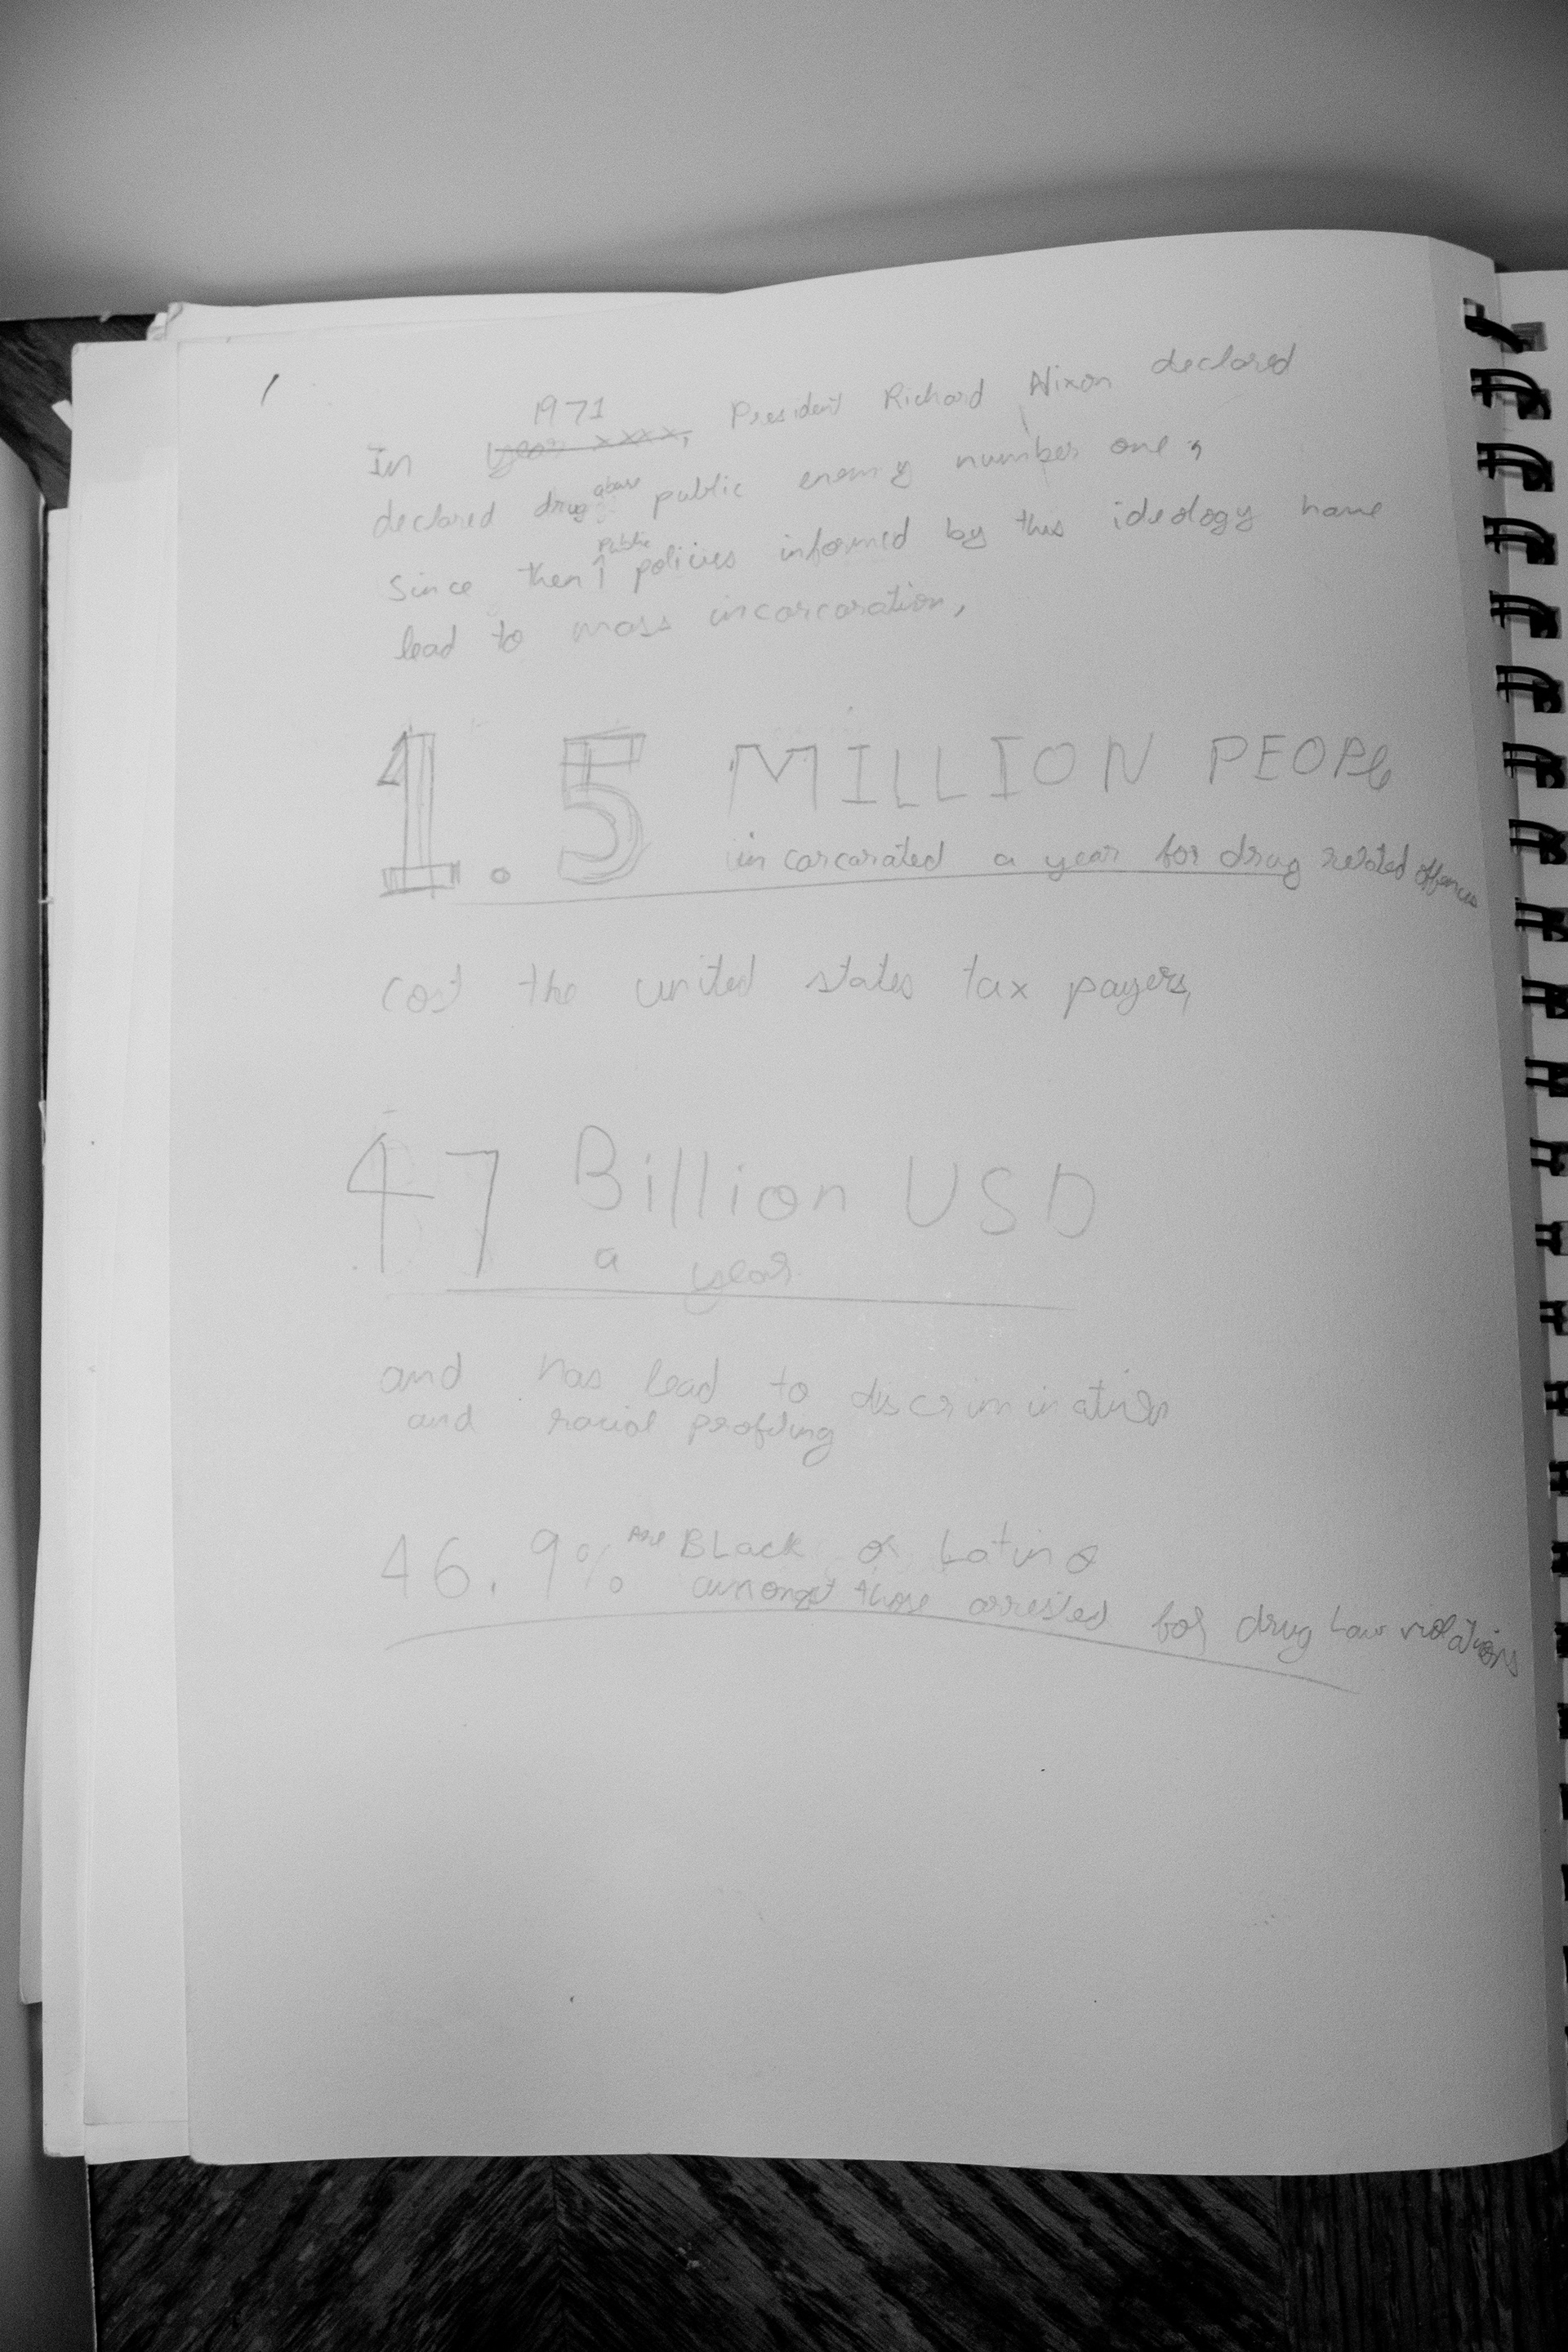 1971
In year xxxx, President Richard Nixon declared
declared drug abuse public enemy number one,
Since then public policies informed by this ideology have
lead to mass incarcaration,
1.5 MILLION PEOPle
incarcarated a year for drug related offences
cost the united states tax payers,
47 Billion USD
a year
and has lead to discrimination
and racial profiling
46.9% are BLack or Latino
amongst those arrested for drug Law violations